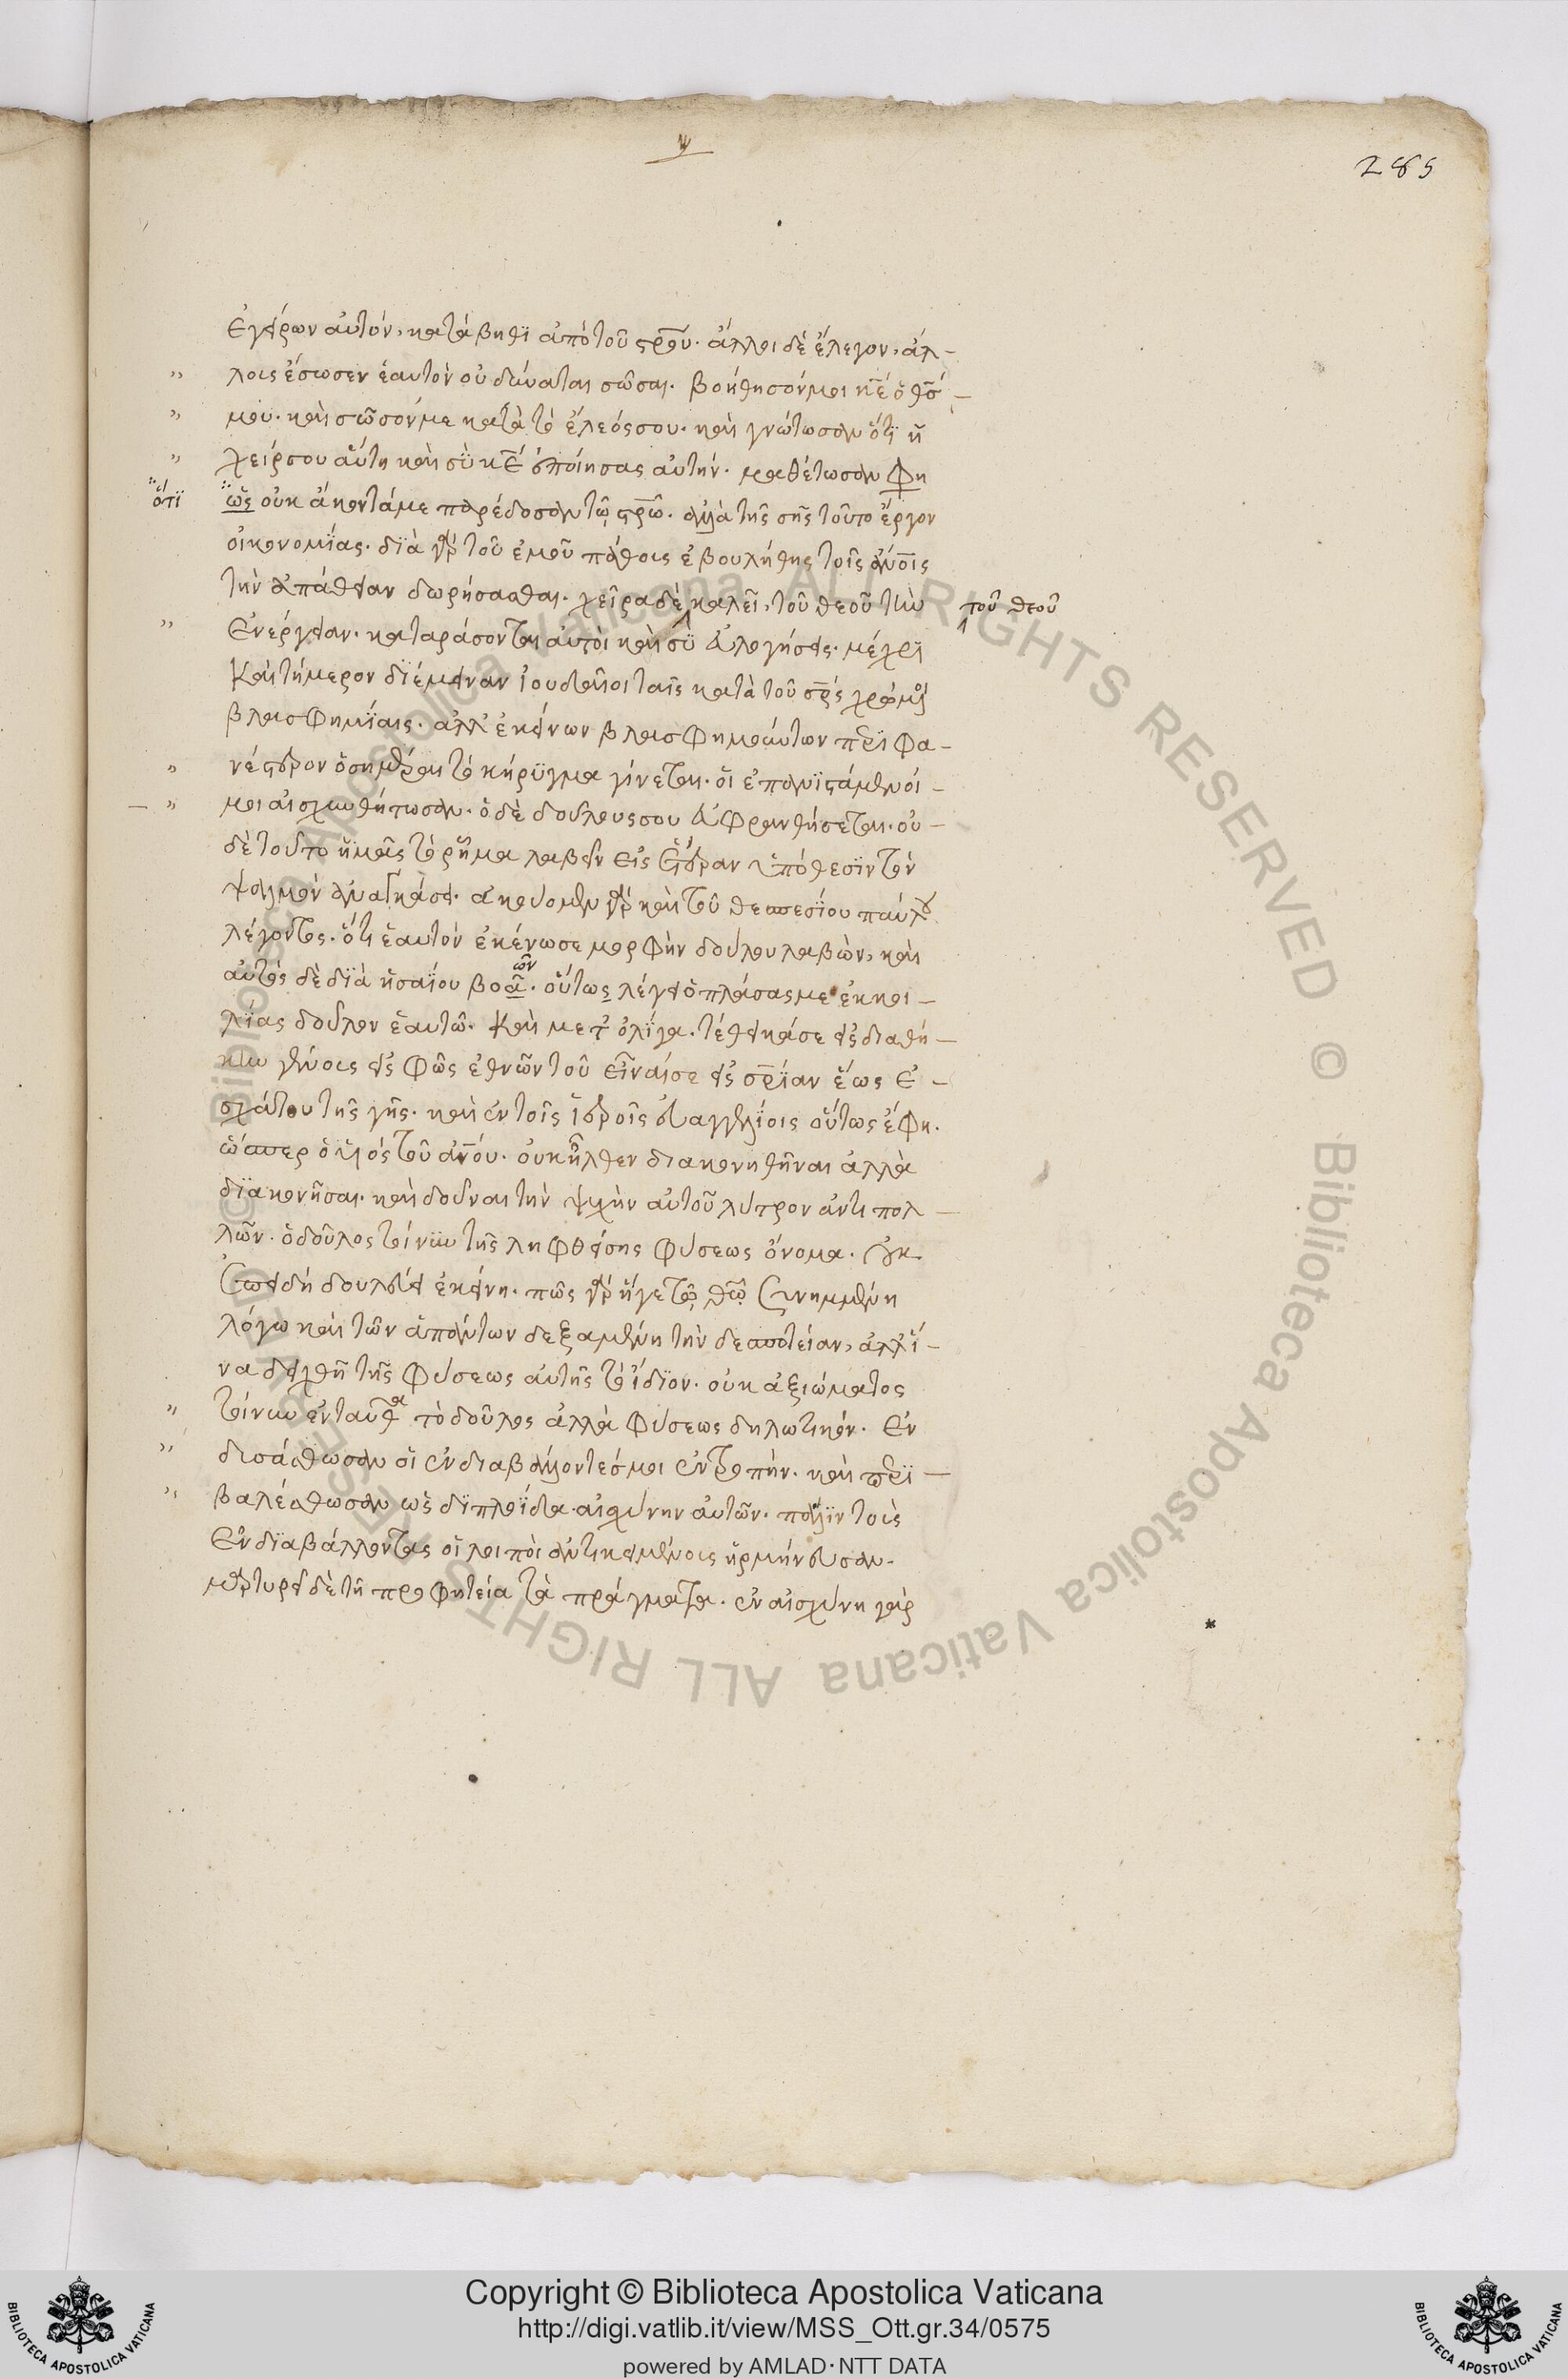 ψ
285
ἐγείρων αὐτόν, κατάβηθι ἀπὸ τοῦ σρου. ἄλλοι δὲ ἔλεγον, ἄλ-
λοις ἔσωσεν ἑαυτὸν οὐ δύναται σῶσαι. βοήθησόν μοι κε ὁ θσ
μου. καὶ σῶσόν με κατὰ τὸ ἔλεός σου. καὶ γνώτωσαν ὅτι ἡ
χείρ σου αὕτη καὶ σὺ κε ἐποίησας αὐτήν. μαθέτωσαν φη
ὅτι ὡς οὐκ ἄκοντά με παρέδοσαν τῷ σρω. ἀλλὰ τῆς σῆς τοῦτο ἔργον
οἰκονομίας. διὰ γὰρ τοῦ ἐμοῦ πάθους ἐβουλήθης τοῖς ανοις
τὴν ἀπάθειαν δωρήσασθαι. χεῖρα δὲ καλεῖ, τοῦ θεοῦ τὴν τοῦ θεοῦ
ἐνέργειαν. καταράσονται αὐτοὶ καὶ σὺ εὐλογήσεις. μέχρι
καὶ τήμερον διέμειναν ἰουδαῖοι ταῖς κατὰ τοῦ σρς χρώμενοι
βλασφημίαις. ἀλλ' ἐκείνων βλασφημούντων περιφα-
νέστερον ὁσημέραι τὸ κήρυγμα γίνεται. οἱ ἐπανιστάμενοί
μοι αἰσχυνθήτωσαν. ὁ δὲ δοῦλος σου εὐφρανθήσεται. οὐ-
δὲ τοῦτο ἡμᾶς τὸ ῥῆμα λαβεῖν εἰς ἑτέραν ὑπόθεσιν τὸν
ψαλμὸν ἀναγκάσει. ἀκούομεν γὰρ καὶ τοῦ θεσπεσίου παύλου
λέγοντος. ὅτι ἑαυτὸν ἐκένωσε μορφὴν δούλου λαβὼν, καὶ
αὐτὸς δὲ διὰ ἡσαΐου βοᾶ ῶν. οὕτως λέγει ὁ πλάσας με ἐκ κοι-
λίας δοῦλον ἑαυτῶ. καὶ μετ' ὀλίγα. τέθεικά σε εἰς διαθή-
κην γένους εἰς φῶς ἐθνῶν τοῦ εἶναί σε εἰς σριαν ἕως ἐ-
σχάτου τῆς γῆς. καὶ ἐν τοῖς ἱεροῖς εὐαγγελίοις οὕτως ἔφη.
ὥσπερ ὁ υἱὸς τοῦ ανου. οὐκ ἦλθεν διακονηθῆναι ἀλλὰ
διακονῆσαι. καὶ δοῦναι τὴν ψυχὴν αὐτοῦ λύτρον ἀντὶ πολ-
λῶν. ὁ δοῦλος τοίνυν τῆς ληφθείσης φύσεως ὄνομα. οὐκ
ἐπειδὴ δουλεύει ἐκείνη. πῶς γὰρ ἥγε τῷ θω συνημμένη
λόγω καὶ τῶν ἁπάντων δεξαμένη τὴν δεσποτείαν, ἀλλ' ἵ-
να δειχθῆ τῆς φύσεως αὐτῆς τὸ ἴδιον. οὐκ ἀξιώματος
τοίνυν ἐνταῦθα τὸ δοῦλος ἀλλὰ φύσεως δηλωτικόν. ἐν
δυσάσθωσαν οἱ ἐνδιαβάλλοντές μοι ἐντροπήν. καὶ περι-
βαλέσθωσαν ὡς διπλοΐδα αἰσχύνην αὐτῶν. πάλιν τοὺς
ἐνδιαβάλλοντας οἱ λοιποὶ ἀντικειμένους ἡρμήνευσαν.
μαρτυρεῖ δὲ τῆ προφητεία τὰ πράγματα. ἐν αἰσχύνη γὰρ
Copyright © Biblioteca Apostolica Vaticana
http://digi.vatlib.it/view/MSS_Ott.gr.34/0575
powered by AMLAD·NTT DATA